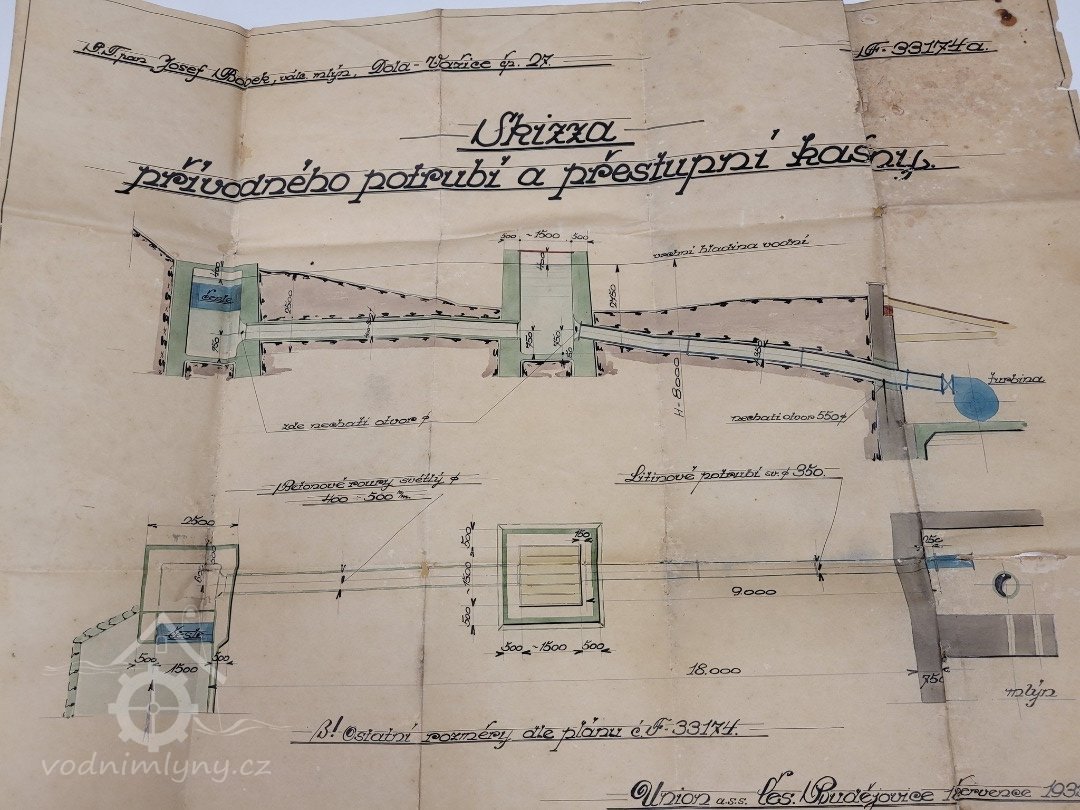 P.T. pan Josef Bopek, vále. mlýn, Dola-Vařice čp. 27.
F-33174a.
Skizza
přívodného potrubí a přestupní kašny.
500 ~1500 500
vrchní hladina vodní
400
400
česle
2500
2450
750
750
150
H-8000
turbina
zde nechati otvor ϕ
nechati otvor 550ϕ
Betonové roury světlý ϕ
400-500 m/m
Litinové potrubí sv. ϕ 350
2500
150
500
~1500
500
9000
česle
500 1500 500
500 ~1500 500
18.000
750
mlýn
B! Ostatní rozměry dle plánu č F-33174.
vodnimlyny.cz
Union a.s.s. Čes. Budějovice července